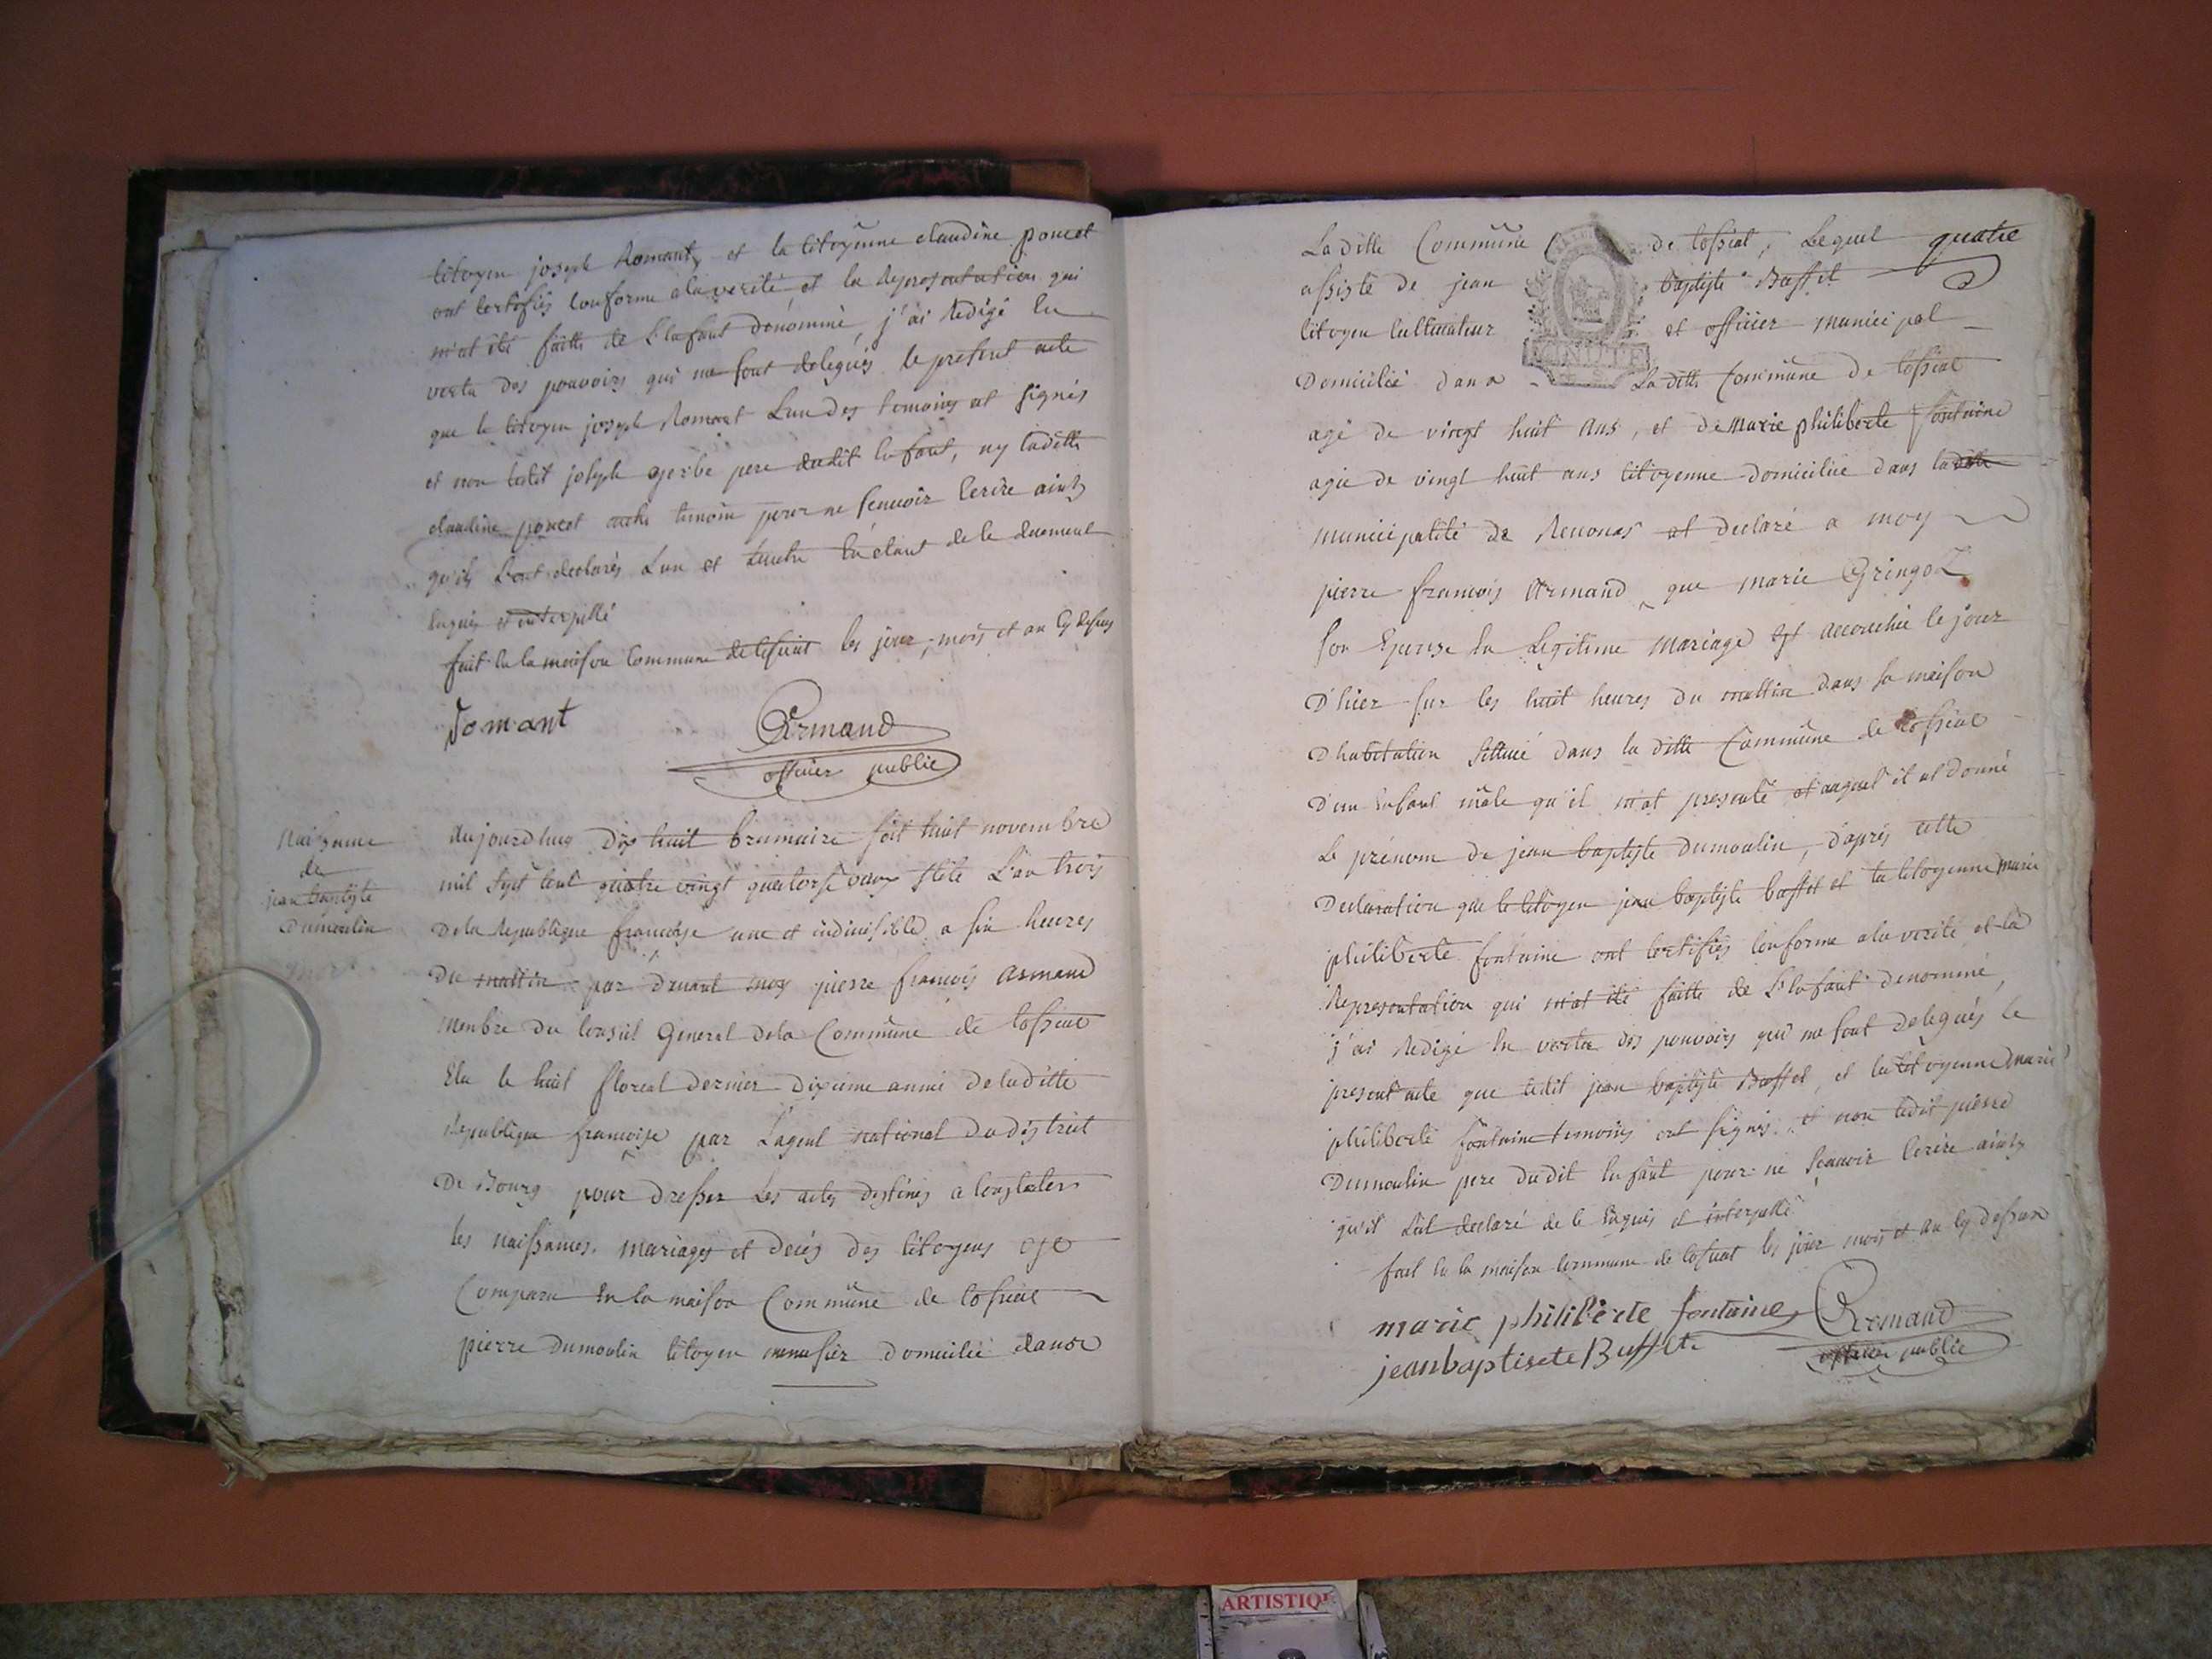 citoyen joseph Romant, et la citoyenne claudine poncet
ont certifiés conforme a la verité et la Representation qui
m'at été faitte de L'enfant dénommé, j'ai Redigé en
vertu des pouvoirs qui me sont delegués le present acte
que le citoyen joseph Romant L'un des temoins at signés
et non ledit joseph gerbe pere dudit enfant, ny laditte
claudine poncet autre temoin pour ne scavoir ecrire ainsy
qu'ils L'ont declarés L'un et L'autre de le duement
Enquis et interpellé
fait en la maison Commune de tossiat les jour, mois et an cy dessus
Romant
Armand
officier public
Naissance
de
jean baptiste
Dumoulin
aujourdhuy dix huit brumaire soit huit novembre
mil sept cent quatre vingt quatorse vieux stile L'an trois
De la Republique francoise une et indivisible a six heures
Du mattin par devant moy pierre francois armand
membre du Conseil General de la Commune de tossiat
Elu le huit floreal dernier dixieme année de laditte
Republique francoise par L'agent national du district
De Bourg pour dresser Les actes destinés a Constater
les naissances, mariages et decés des citoyens
Comparu En la maison Commune de tossiat
pierre dumoulin citoyen domicilié dans
La ditte Commune de tossiat, Lequel quatre
assisté de jean baptiste Buffet
citoyen Cultivateur et officier municipal
MINUTE
Domicilié dans La ditte Commune de tossiat
agé de vingt huit ans, et de marie philiberte fontaine
agée de vingt huit ans citoyenne domiciliée dans laditte
municipalité de Revonas at declaré a moy
pierre francois Armand que marie Gringoz
son Epouse En Legitime Mariage Est accouchée le jour
D'hier sur les huit heures du mattin dans sa maison
D'habitation sittuée dans la ditte Commune de tossiat
D'un Enfant mâle qu'il m'at presenté et auquel il at donné
Le prénom de jean baptiste dumoulin, d'aprés cette
Declaration que le citoyen jean baptiste buffet et la citoyenne marie
philiberte fontaine ont certifiés conforme a la verité et la
Representation qui m'at été faitte de L'Enfant denommé,
j'ai Redigé En vertu des pouvoirs qui me sont delegués le
present acte que ledit jean baptiste Buffet, et la citoyenne marie
philiberte fontaine temoins ont signés et non ledit pierre
Dumoulin pere dudit Enfant pour ne scavoir Ecrire ainsy
qu'il L'at declaré de le Enquis et interpellé
fait En la maison Commune de tossiat les jour mois et an cy dessus
marie philiberte fontaine
Armand
officier public
jeanbaptisete Buffet
ARTISTIQUE